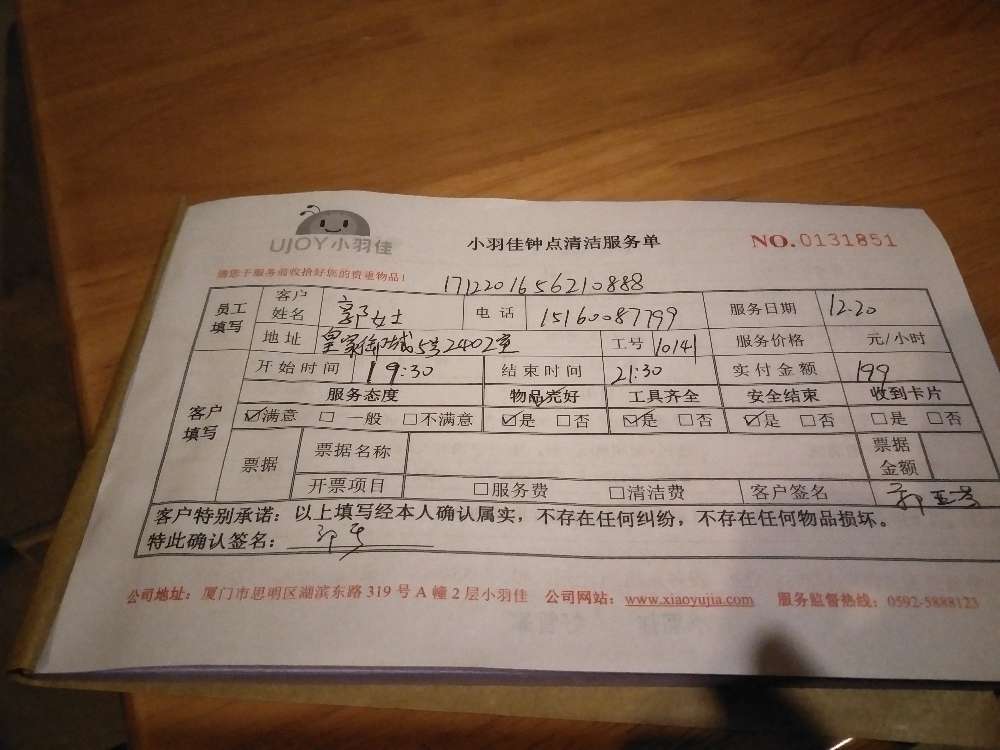 UJOY小羽佳
小羽佳钟点清洁服务单
NO.0131851
请您于服务前收拾好您的贵重物品!
1712201656210888
员工填写 客户姓名 郭女士 电话 15160087799 服务日期 12.20
地址 皇家御城5号2402室 工号 10141 服务价格 元/小时
客户填写 开始时间 19:30 结束时间 21:30 实付金额 199
服务态度 物品完好 工具齐全 安全结束 收到卡片
☑满意 □ 一般 □不满意 ☑是 □否 ☑是 □否 ☑是 □否 □是 □否
票据 票据名称 票据金额
开票项目 □服务费 □清洁费 客户签名
客户特别承诺：以上填写经本人确认属实，不存在任何纠纷，不存在任何物品损坏。
特此确认签名：
公司地址：厦门市思明区湖滨东路 319 号 A 幢 2 层小羽佳 公司网站：www.xiaoyujia.com 服务监督热线：0592-5888123